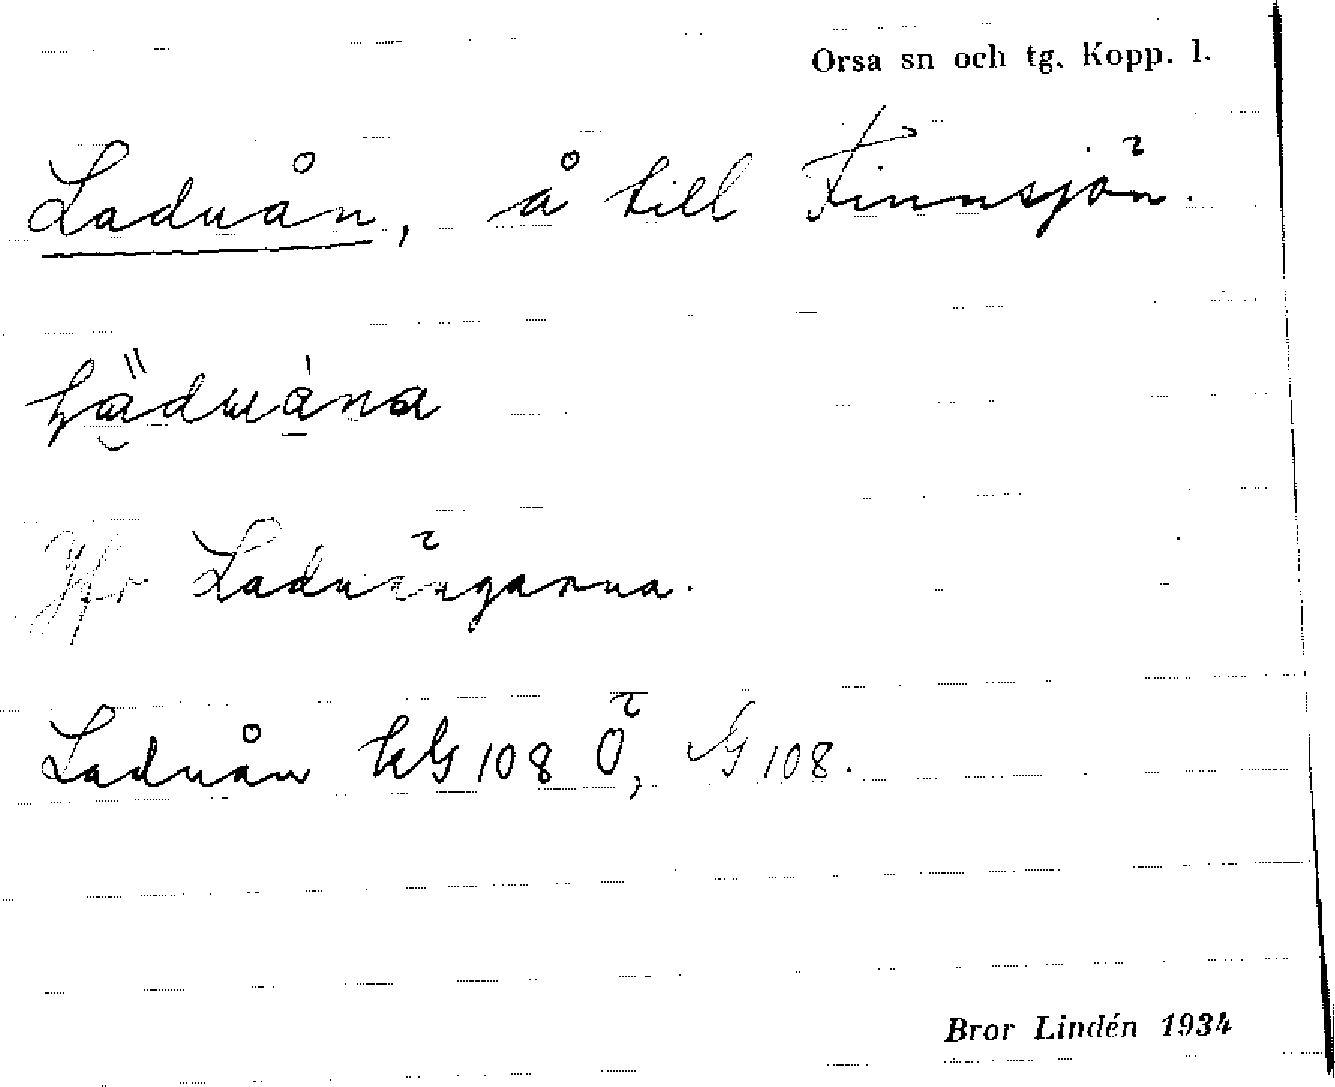 Orsa sn och tg. Kopp. l.
Laduån, å till Finnsjön.
Jfr Laduängarna.
Laduån kG 108 Ö, G 108.
Bror Lindén 1934